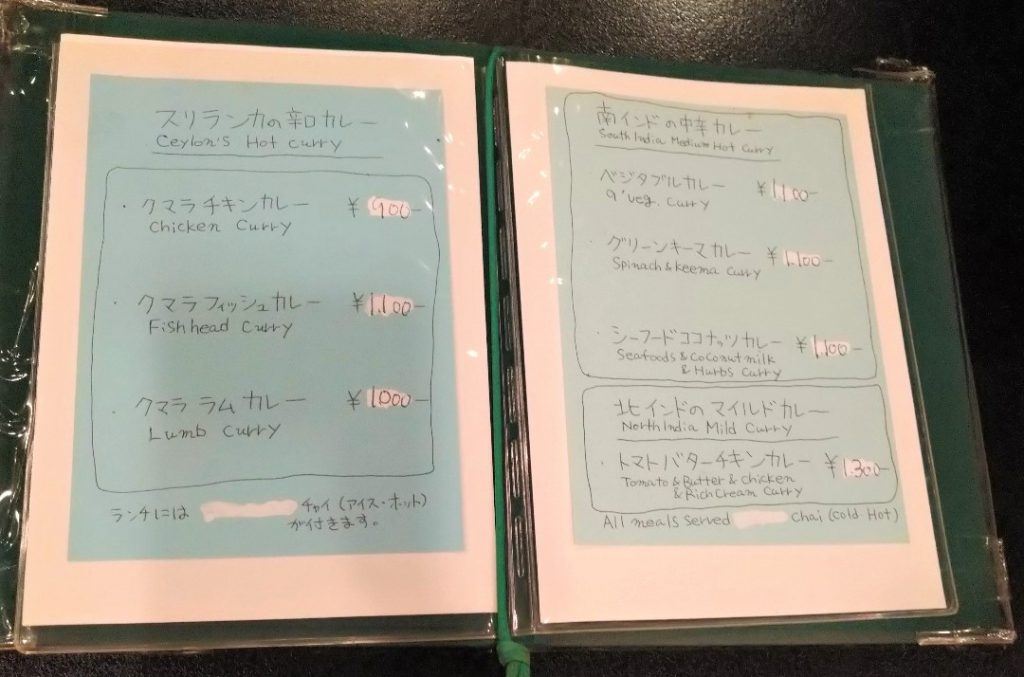 スリランカの辛口カレー
Ceylon's Hot Curry
・クマラチキンカレー ¥900-
Chicken Curry
・クマラフィッシュカレー ¥1.100-
Fishhead Curry
・クマララムカレー ¥1000-
Lumb Curry
ランチには チャイ(アイス・ホット)
が付きます。
南インドの中辛カレー
South India Medium Hot Curry
・ベジタブルカレー ¥1100-
9'veg. Curry
・グリーンキーマカレー ¥1.100-
Spinach & Keema Curry
・シーフードココナッツカレー ¥1.100-
Seafoods & Coconutmilk
& Hurbs Curry
北インドのマイルドカレー
North India Mild Curry
・トマトバターチキンカレー ¥1.300-
Tomato & Butter & Chicken
& Rich Cream Curry
All meals Served Chai (Cold Hot)